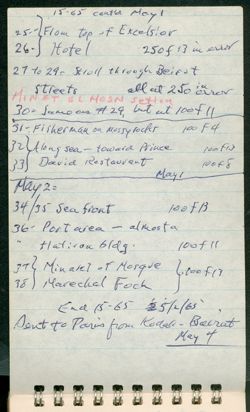 15-65 contd May 1
25- From top of Excelsior
26- Hotel 250 f 13 in error
27 to 29- Stroll through Beirut
streets all at 250 in error
MINET EL HOSN section
30- Same as #29, but at 100 f 11
31- Fisherman on mossy rocks 100 f 4
32 Along sea - toward Prince 100 f 13
33 David Restaurant 100 f 8
May 1
May 2=
34/35 Seafront 100 f 13
36- Port area - almost a
" bldg. 100 f 11
37 Minaret of Mosque
38 Marechal Foch 100 f 13
End 15-65 5/2/65
Sent to Paris from Kodak - Beirut
May 4